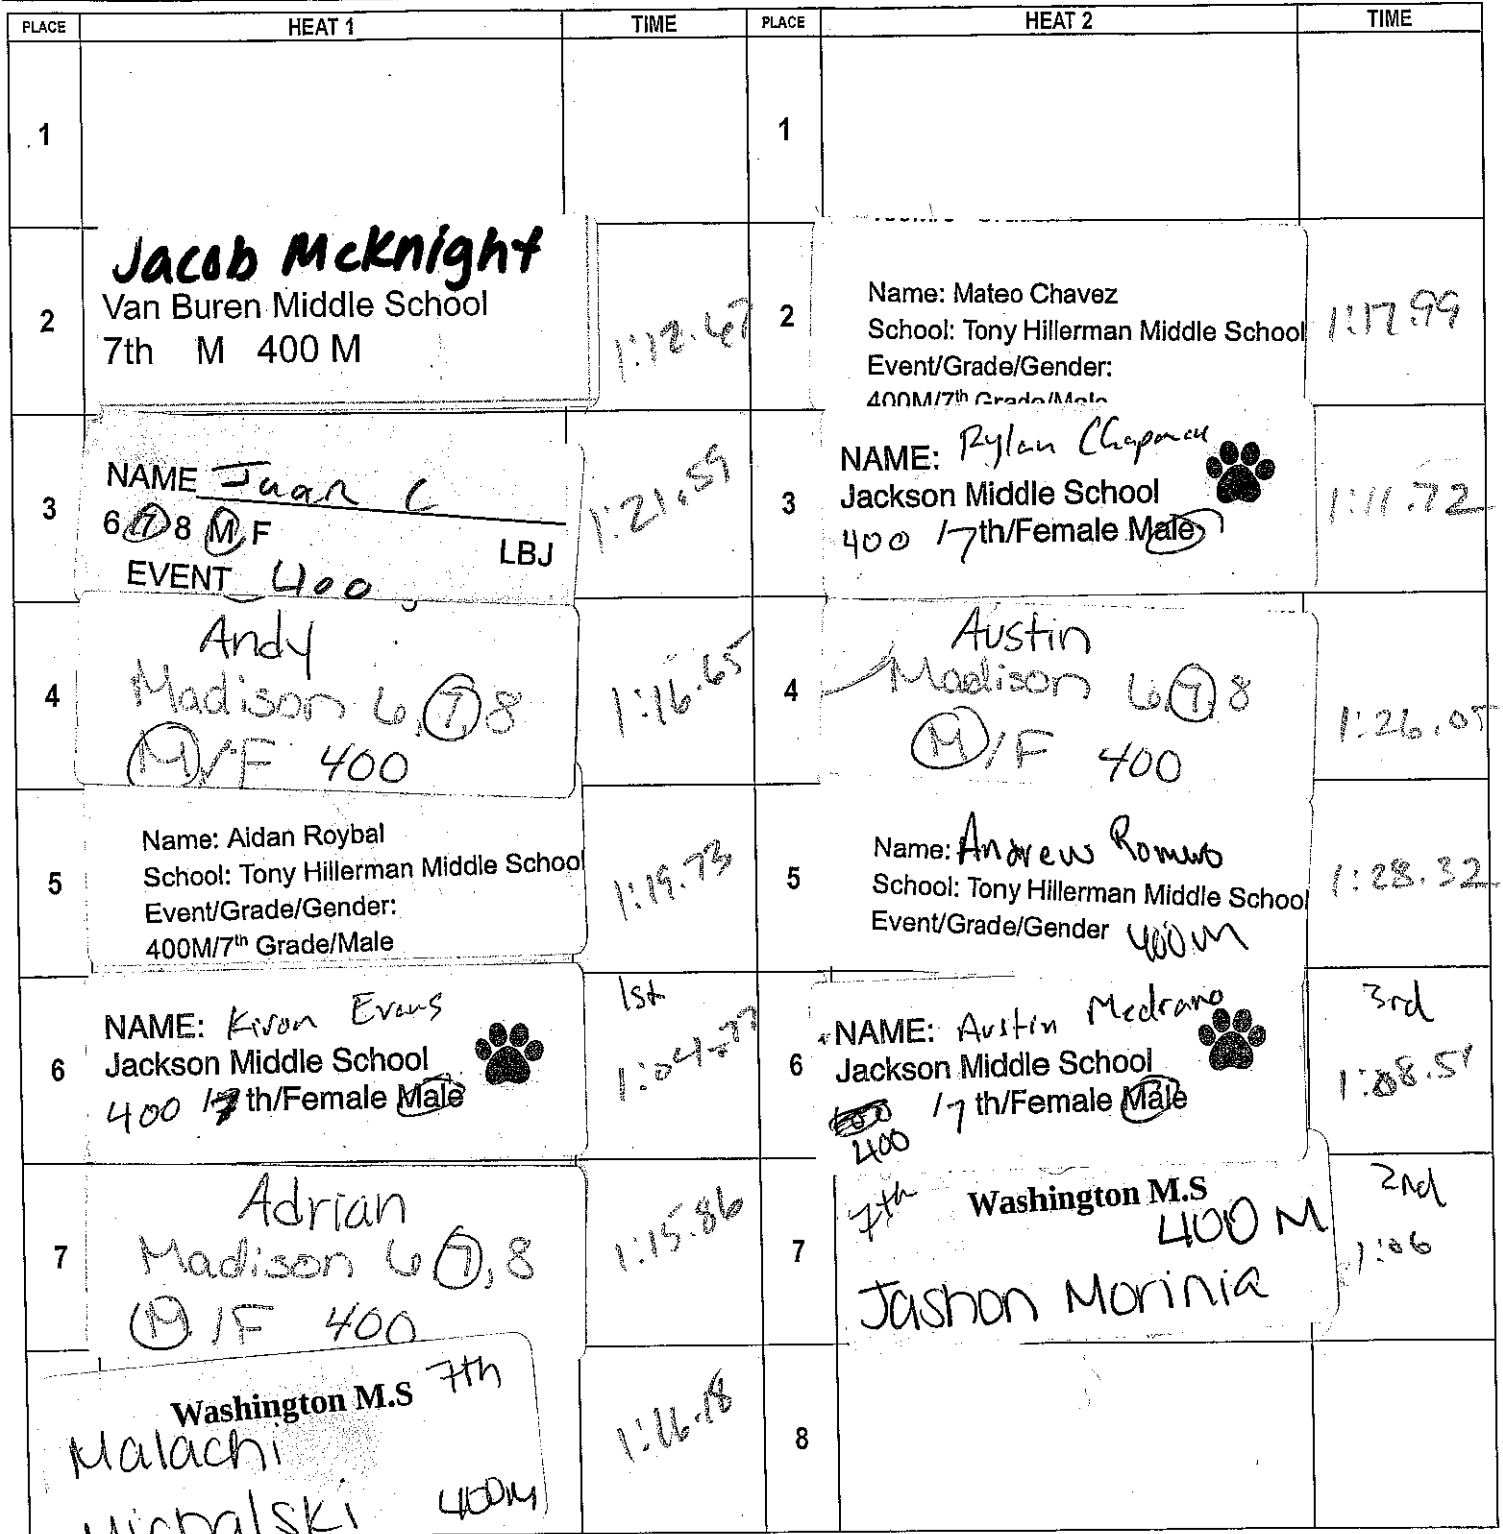 PLACE HEAT 1 TIME PLACE HEAT 2 TIME
1
1
2
Jacob McKnight
Van Buren Middle School
7th M 400 M
1:12.47
2
Name: Mateo Chavez
School: Tony Hillerman Middle School
Event/Grade/Gender:
400M/7th Grade/Male
1:17.99
3
NAME Juan C
6 7 8 M F
LBJ
EVENT 400
1:21.59
3
NAME: Rylan Chapman
Jackson Middle School
400 /7th/Female Male
1:11.72
4
Andy
Madison 6,7,8
M/F 400
1:16.65
4
Austin
Madison 6,7,8
M/F 400
1:26.05
5
Name: Aidan Roybal
School: Tony Hillerman Middle School
Event/Grade/Gender:
400M/7th Grade/Male
1:19.73
5
Name: Andrew Romero
School: Tony Hillerman Middle School
Event/Grade/Gender 400M
1:28.32
6
NAME: Kivon Evans
Jackson Middle School
400 /7th/Female Male
1st
1:04.77
6
NAME: Austin Medrano
Jackson Middle School
/7th/Female Male
400
3rd
1:08.51
7
Adrian
Madison 6,7,8
M/F 400
1:15.86
7
7th Washington M.S
400 M
Jashon Morinia
2nd
1:06
Washington M.S 7th
Malachi
Michalski 400M
1:16.18
8